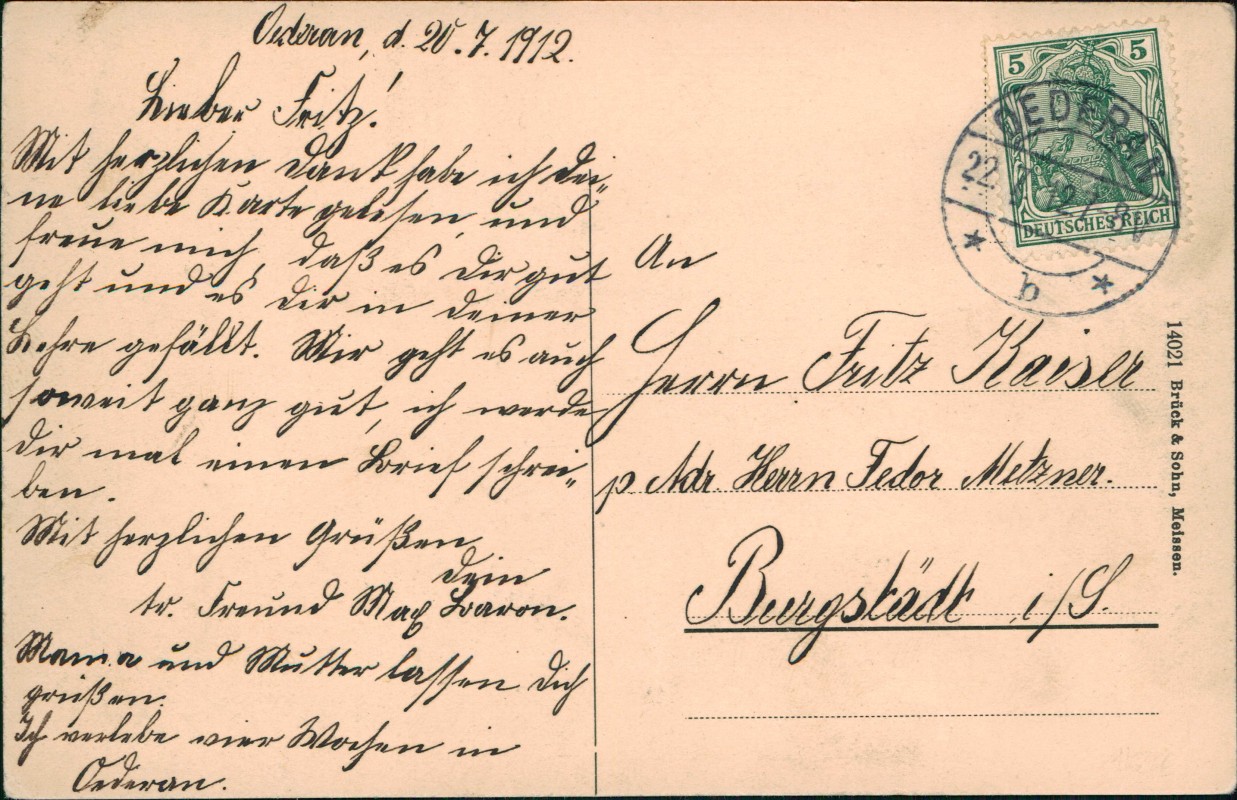 Oederan, d. 20.7.1912.
Lieber Fritz!
Mit herzlichen Dank habe ich dei-
ne liebe Karte gelesen, und
freue mich, daß es dir gut
geht und es dir in deiner
Lehre gefällt. Mir geht es auch
soweit ganz gut, ich werde
dir mal einen Brief schrei-
ben.
Mit herzlichen Grüßen
dein
tr. Freund Max Baron.
Mama und Mutter lassen dich
grüßen.
Ich verlebe vier Wochen in
Oederan.
5 5
DEUTSCHES REICH
OEDERAN
22.
* b *
An
Herrn Fritz Kaiser
p Adr. Herrn Fedor Metzner.
Burgstädt i/S.
14021 Brück & Sohn, Meissen.